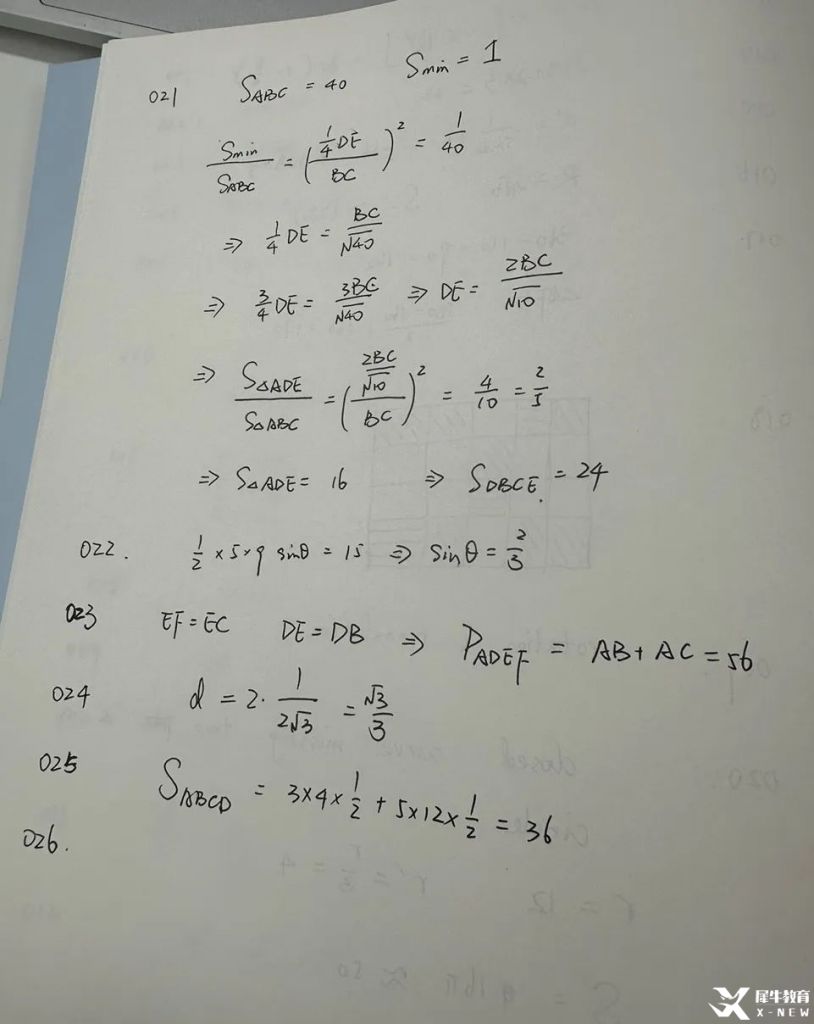 021 S_ABC = 40 S_min = 1
S_min / S_ABC = (1/4 DE / BC)² = 1/40
⇒ 1/4 DE = BC/√40
⇒ 3/4 DE = 3BC/√40 ⇒ DE = 2BC/√10
⇒ S△ADE / S△ABC = (2BC/√10 / BC)² = 4/10 = 2/5
⇒ S△ADE = 16 ⇒ S_DBCE = 24
022. 1/2 × 5 × 9 sinθ = 15 ⇒ sinθ = 2/3
023 EF = EC DE = DB ⇒ P_ADEF = AB + AC = 56
024 d = 2 · 1/2√3 = √3/3
025 S_ABCD = 3×4×1/2 + 5×12×1/2 = 36
026.
犀牛教育
X-NEW